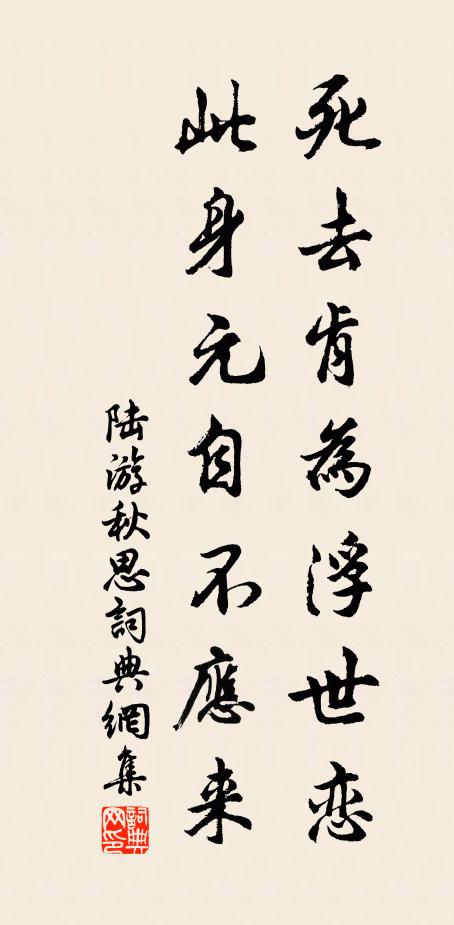 死去肯為浮世恋
此身元自不應来
陆游秋思詞典網集
詞典網印